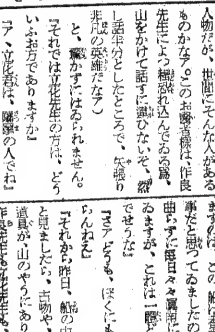 人物だが、世間にそんな人がある
ものかなア。』このお醫者樣は、作良
先生によつ程恐れ込んでゐる爲、
山をかけて話すに違ひないぞ、然
し話半分としたところで、矢張り
非凡の英雄だなア）
と、驚かずにはゐられません。
『それでは立花先生の方は、どう
いふお方でありますか』
『ア、立花君は、
人でね』
事だと思つてゐましたの
曲らずに毎日々々
ゐますが、これは一體
でせうな』
『さア、どうも、ぼくにも
らんよ』
『それから昨日、船の中
と見ましたら、古物や、
道具が山のやうにあり